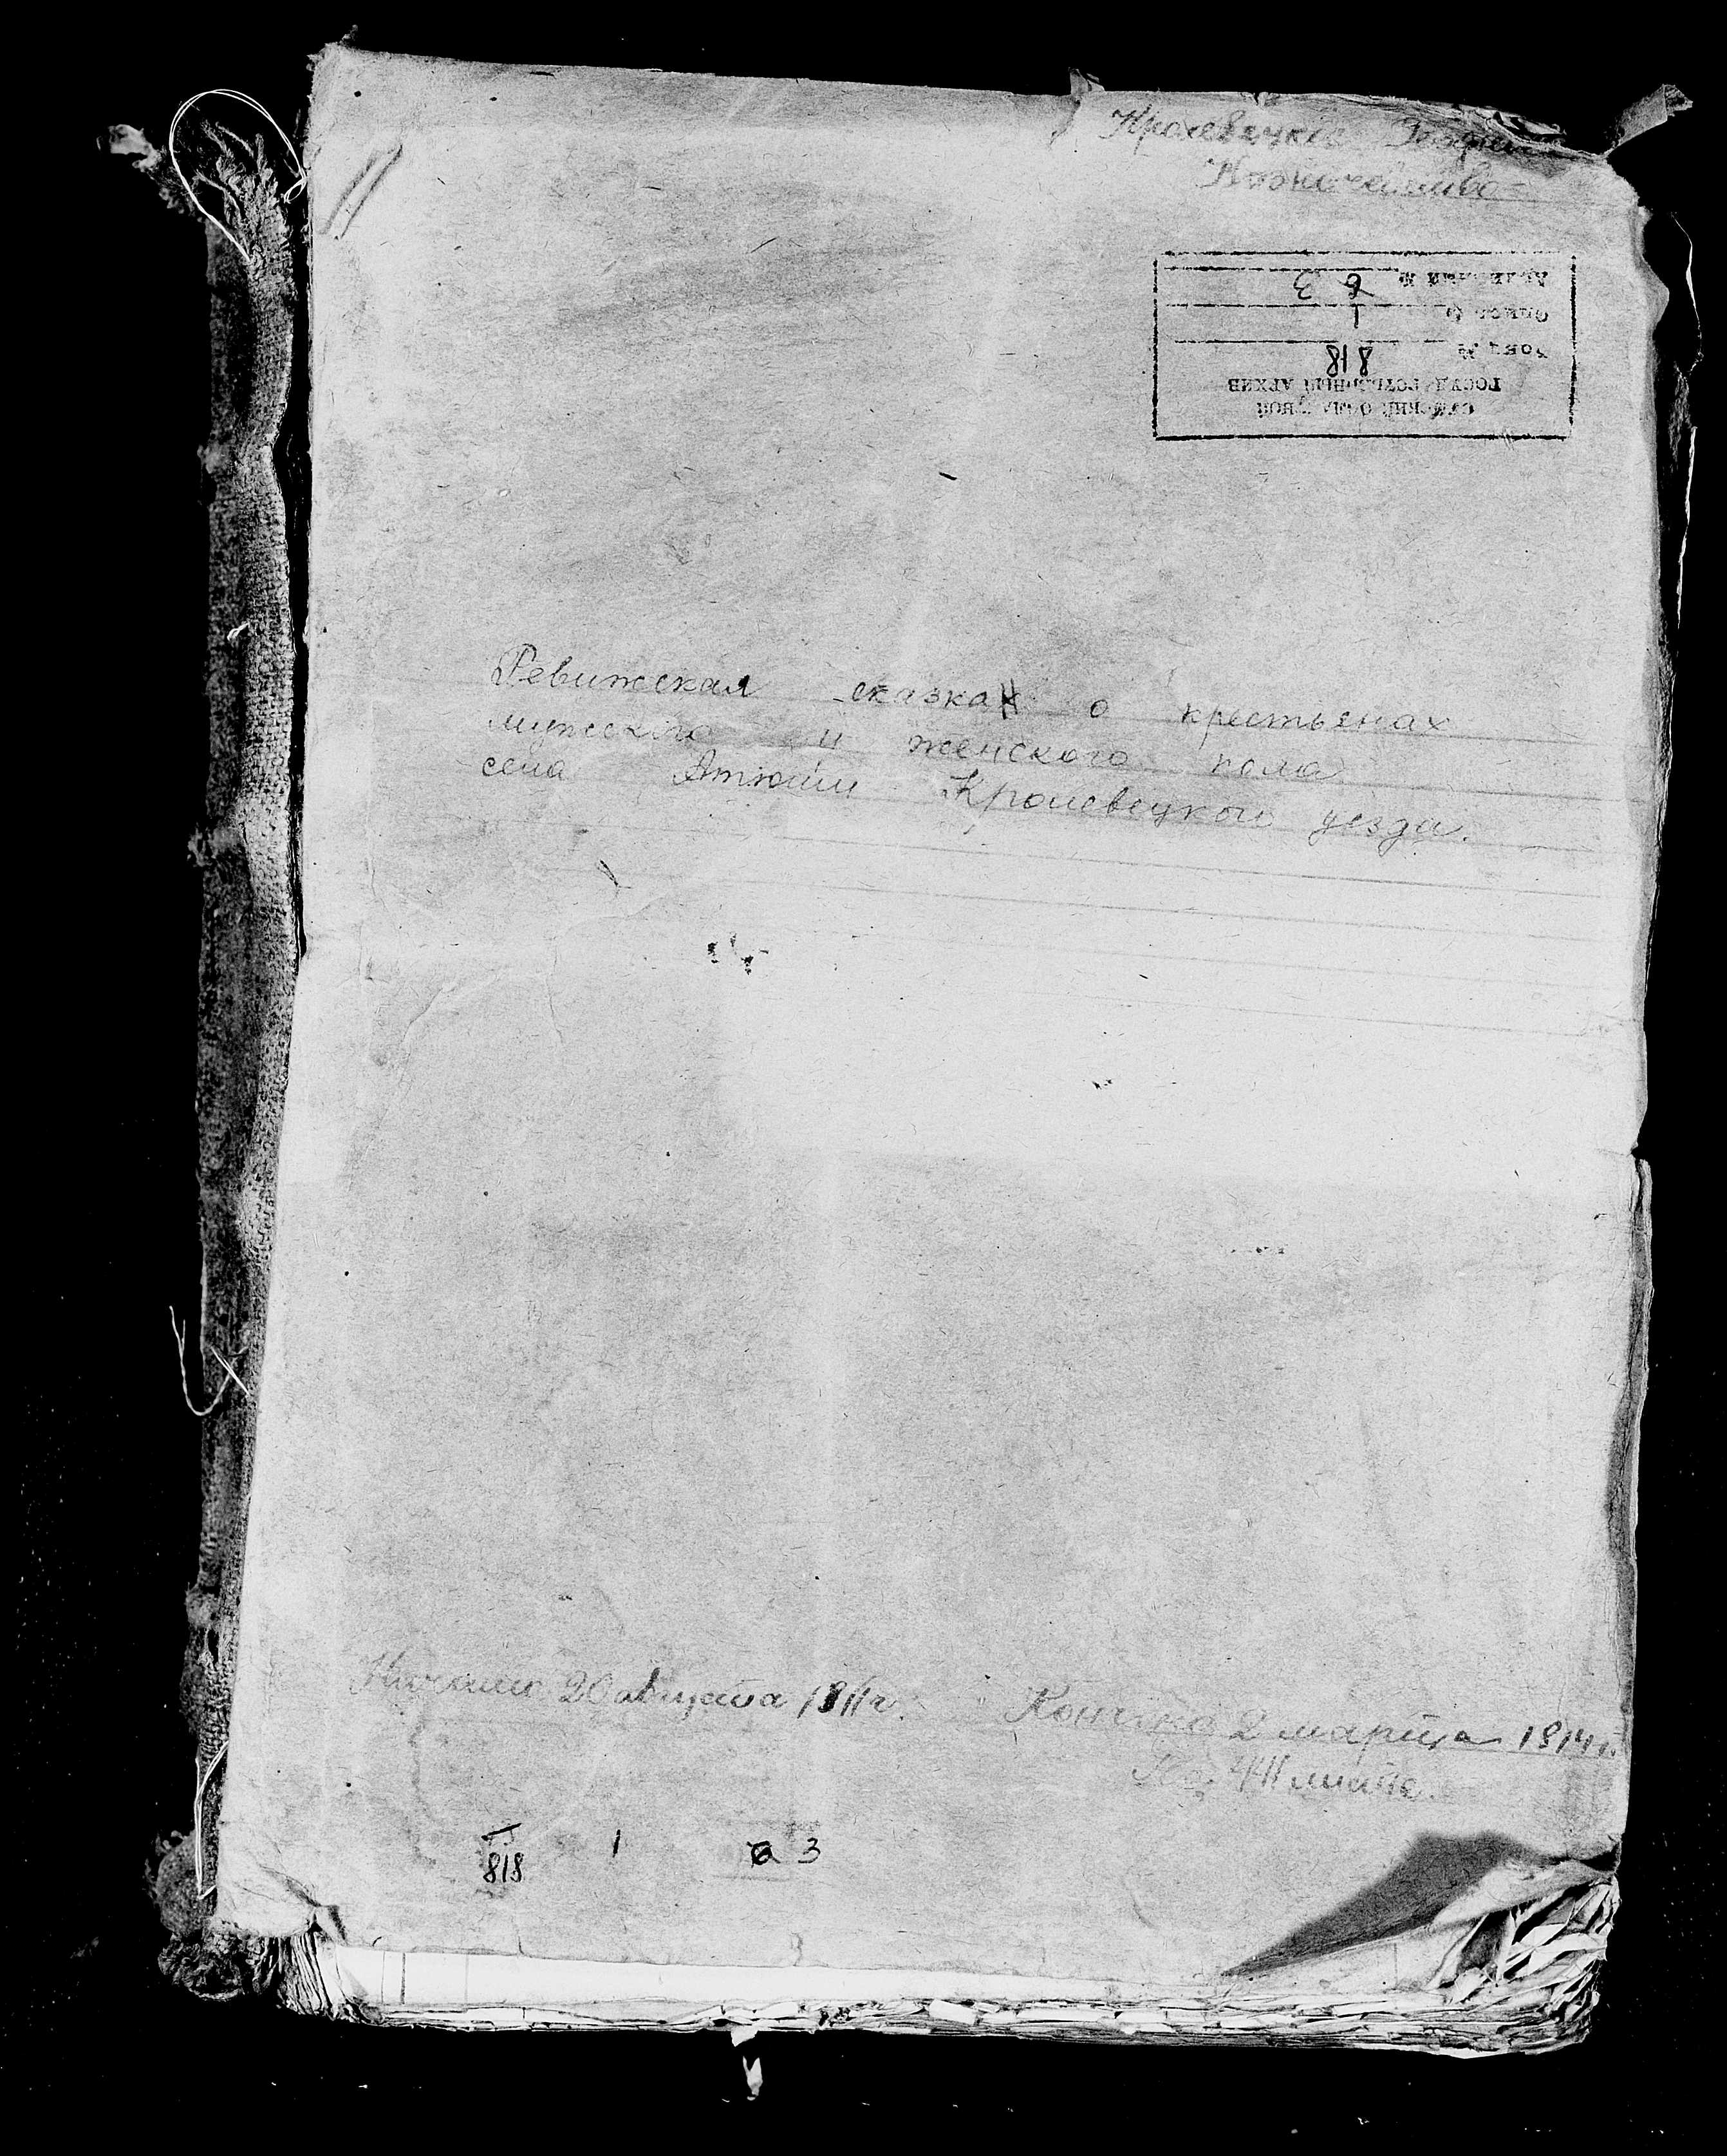 Кролевецкое
Казначейство
СУМСКИЙ ОБЛАСТНОЙ
ГОСУДАРСТВЕННЫЙ АРХИВ
Фонд № 818
Опись № 1
Архивный № 63
Ревижская сказка о крестьянах
мужского и женского пола
села Атюши Кролевецкого уезда.
Начато 20 августа 1811 г.
Кончено 2 марта 1814 г.
На 441 листе
818 1 3